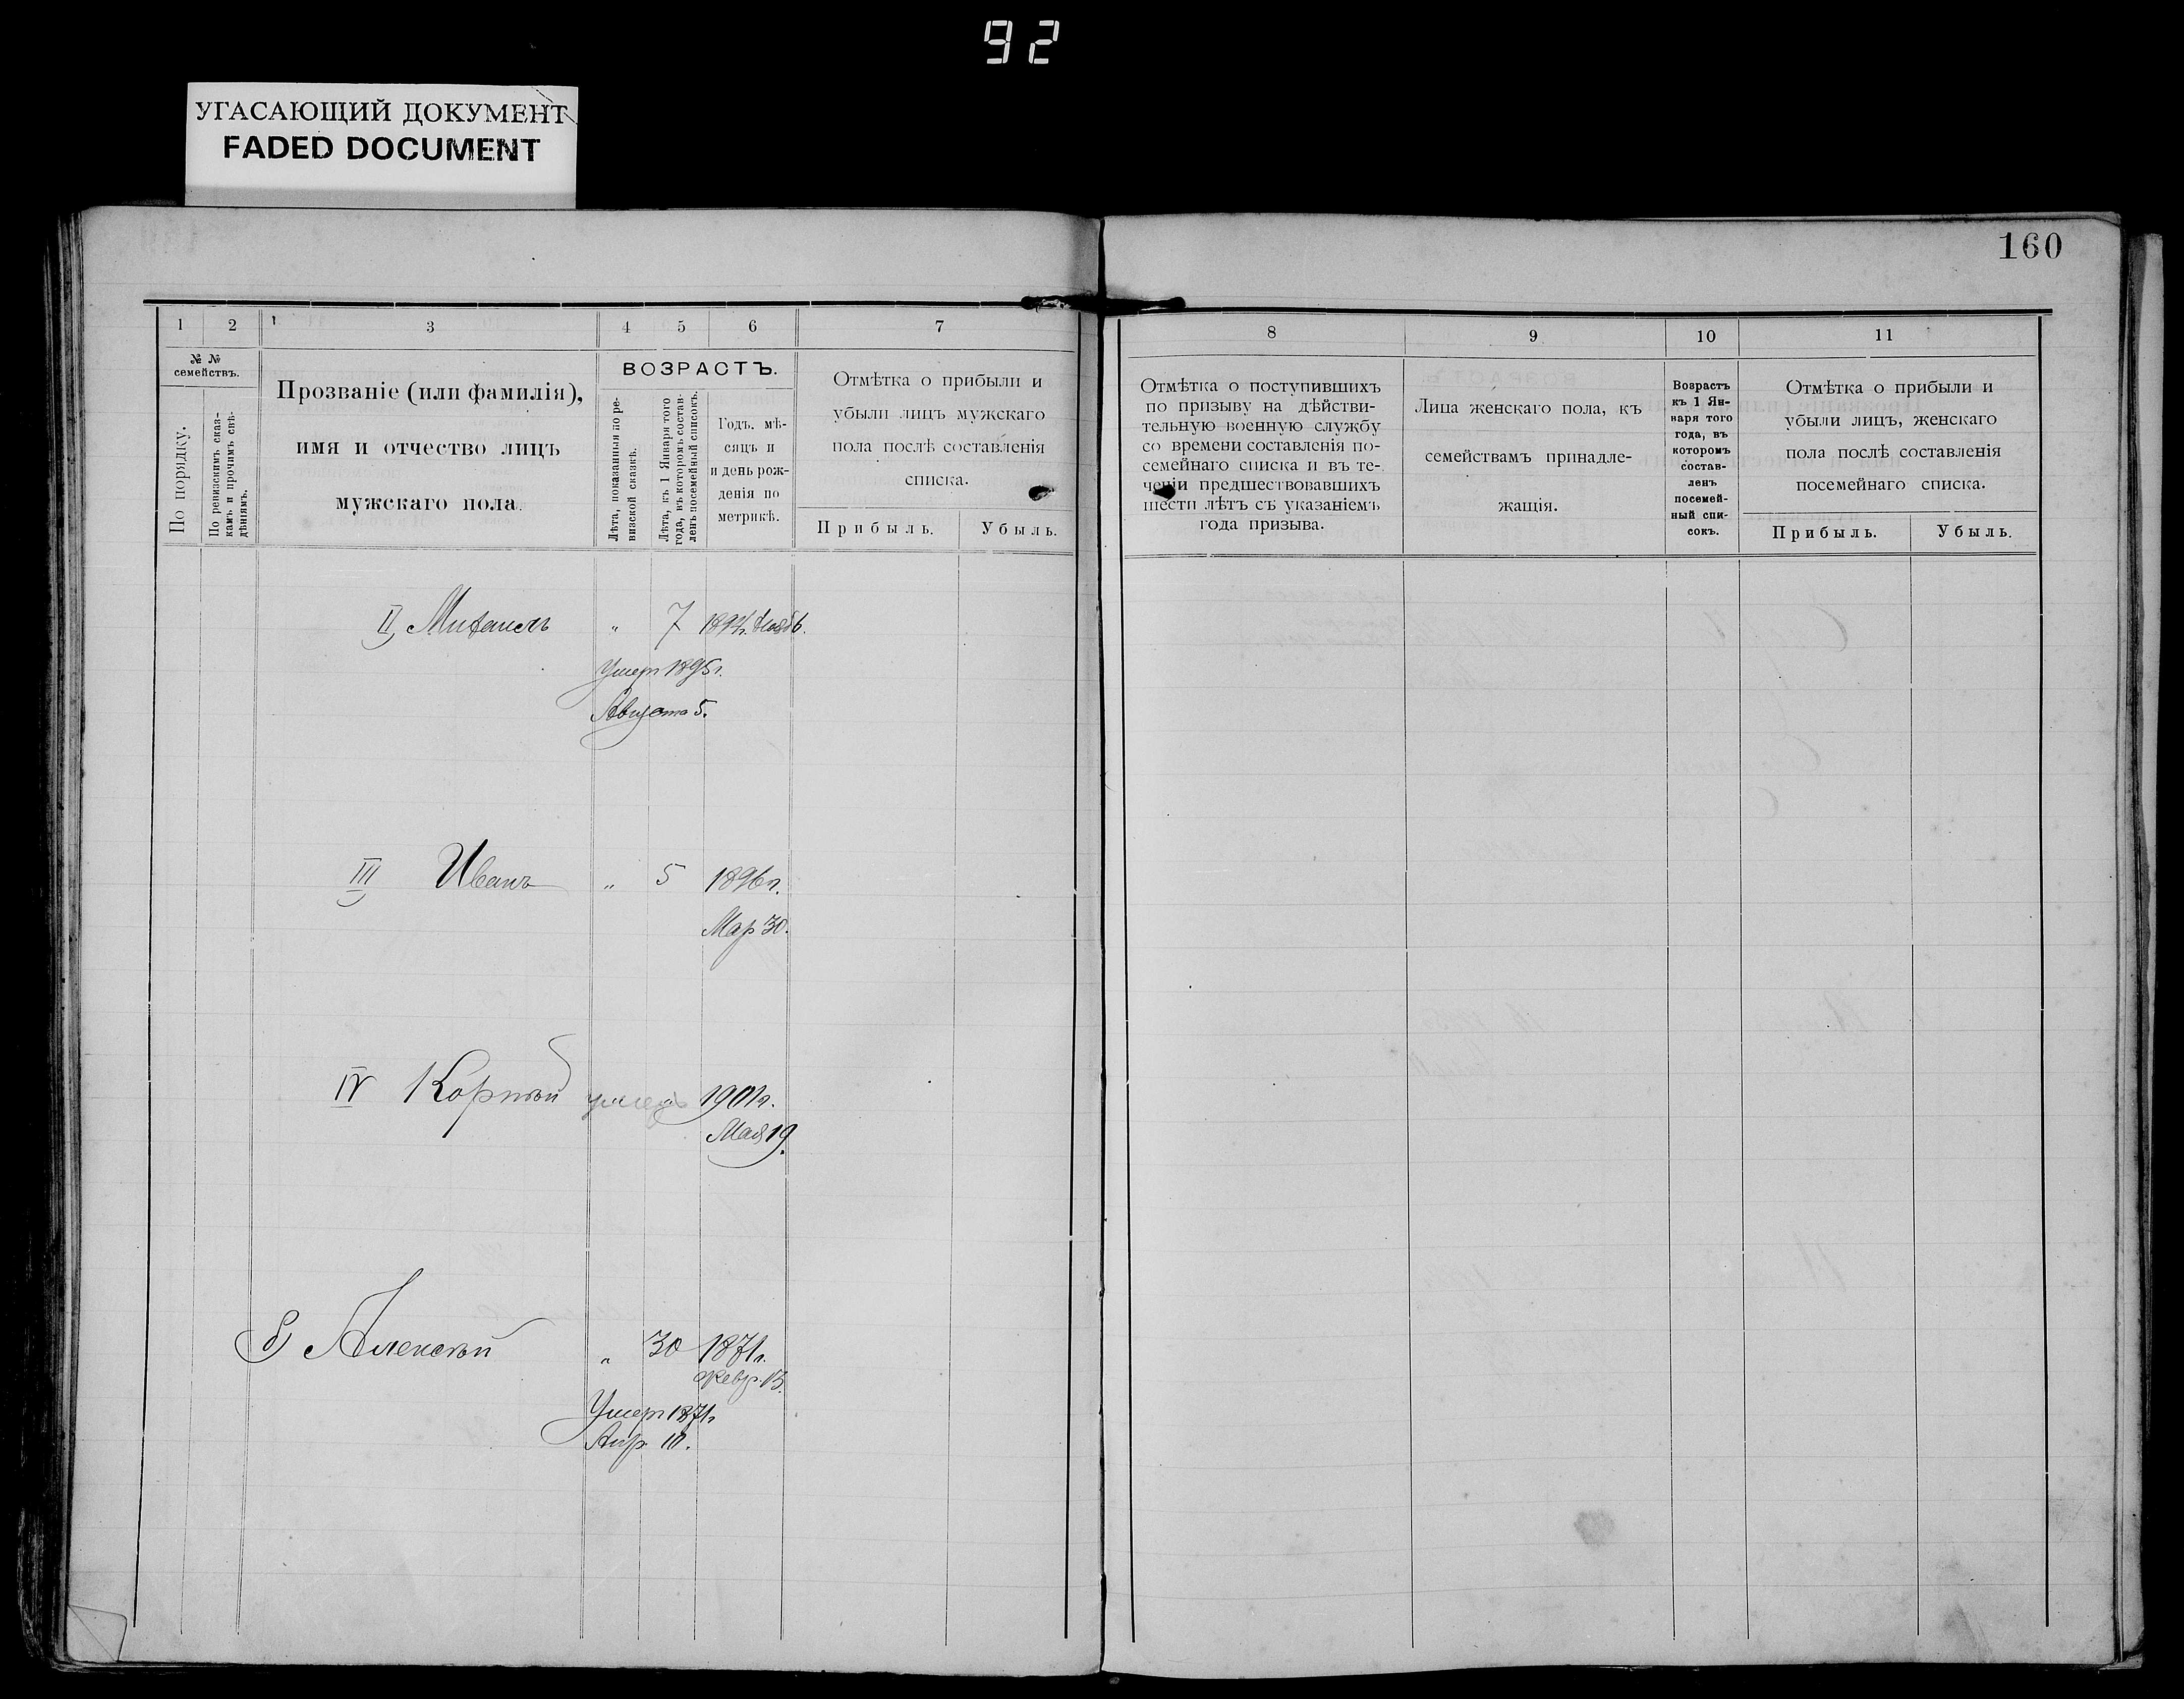 92
УГАСАЮЩИЙ ДОКУМЕНТ
FADED DOCUMENT
160
1 2 3 4 5 6 7
№ №
семействъ.
По порядку.
По ревизскимъ сказ-
камъ и прочимъ свѣ-
дѣніямъ.
Прозваніе (или фамилія),
имя и отчество лицъ
мужскаго пола.
ВОЗРАСТЪ.
Лѣта, показанныя по ре-
визской сказкѣ.
Лѣта, къ 1 Января того
года, въ которомъ состав-
ленъ посемейный списокъ.
Годъ, мѣ-
сяцъ и
и день рож-
денія по
метрикѣ.
Отмѣтка о прибыли и
убыли лицъ мужскаго
пола послѣ составленія
списка.
Прибыль. Убыль.
8 9 10 11
Отмѣтка о поступившихъ
по призыву на дѣйстви-
тельную военную службу
со времени составленія по-
семейнаго списка и въ те-
ченіи предшествовавшихъ
шести лѣтъ съ указаніемъ
года призыва.
Лица женскаго пола, къ
семействамъ принадле-
жащія.
Возрастъ
къ 1 Ян-
варя того
года, въ
которомъ
состав-
ленъ
посемей-
ный спи-
сокъ.
Отмѣтка о прибыли и
убыли лицъ, женскаго
пола послѣ составленія
посемейнаго списка.
Прибыль. Убыль.
II Михаилъ " 7 1894г. Нояб 6.
Умер 1895г.
Августа 5.
III Иванъ " 5 1896г.
Мар 30.
IV Корнѣй умеръ 1901г.
Мая 19.
8) Алексѣй " 30 1871г.
Февр. 13.
Умер 1871г
Апр 10.